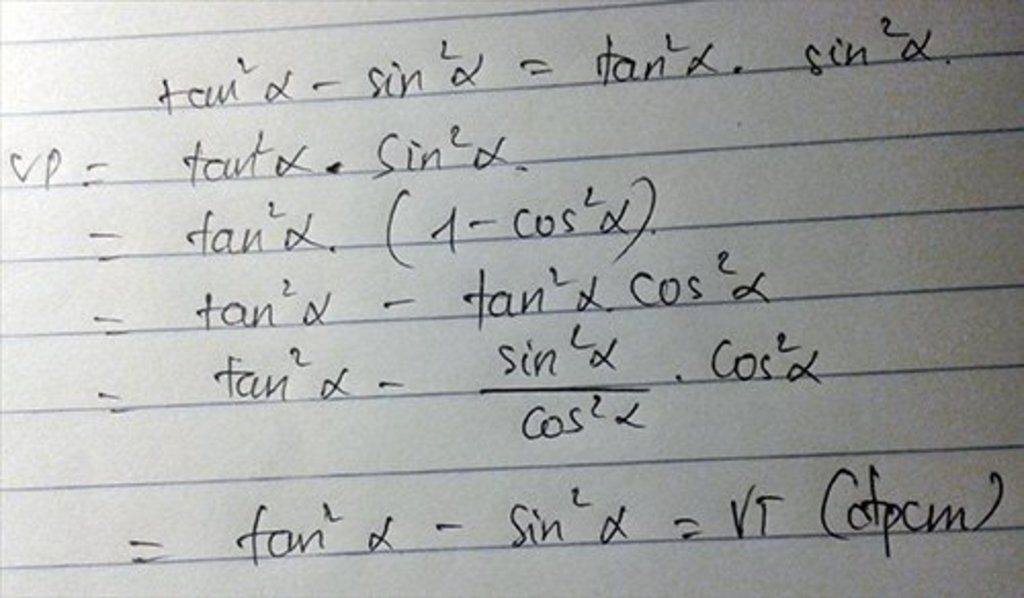 tan²α - sin²α = tan²α. sin²α.
VP = tan²α. Sin²α.
= tan²α. (1 - cos²α).
= tan²α - tan²α. cos²α
= tan²α - sin²α/cos²α . Cos²α
= tan²α - Sin²α = VT (đpcm)